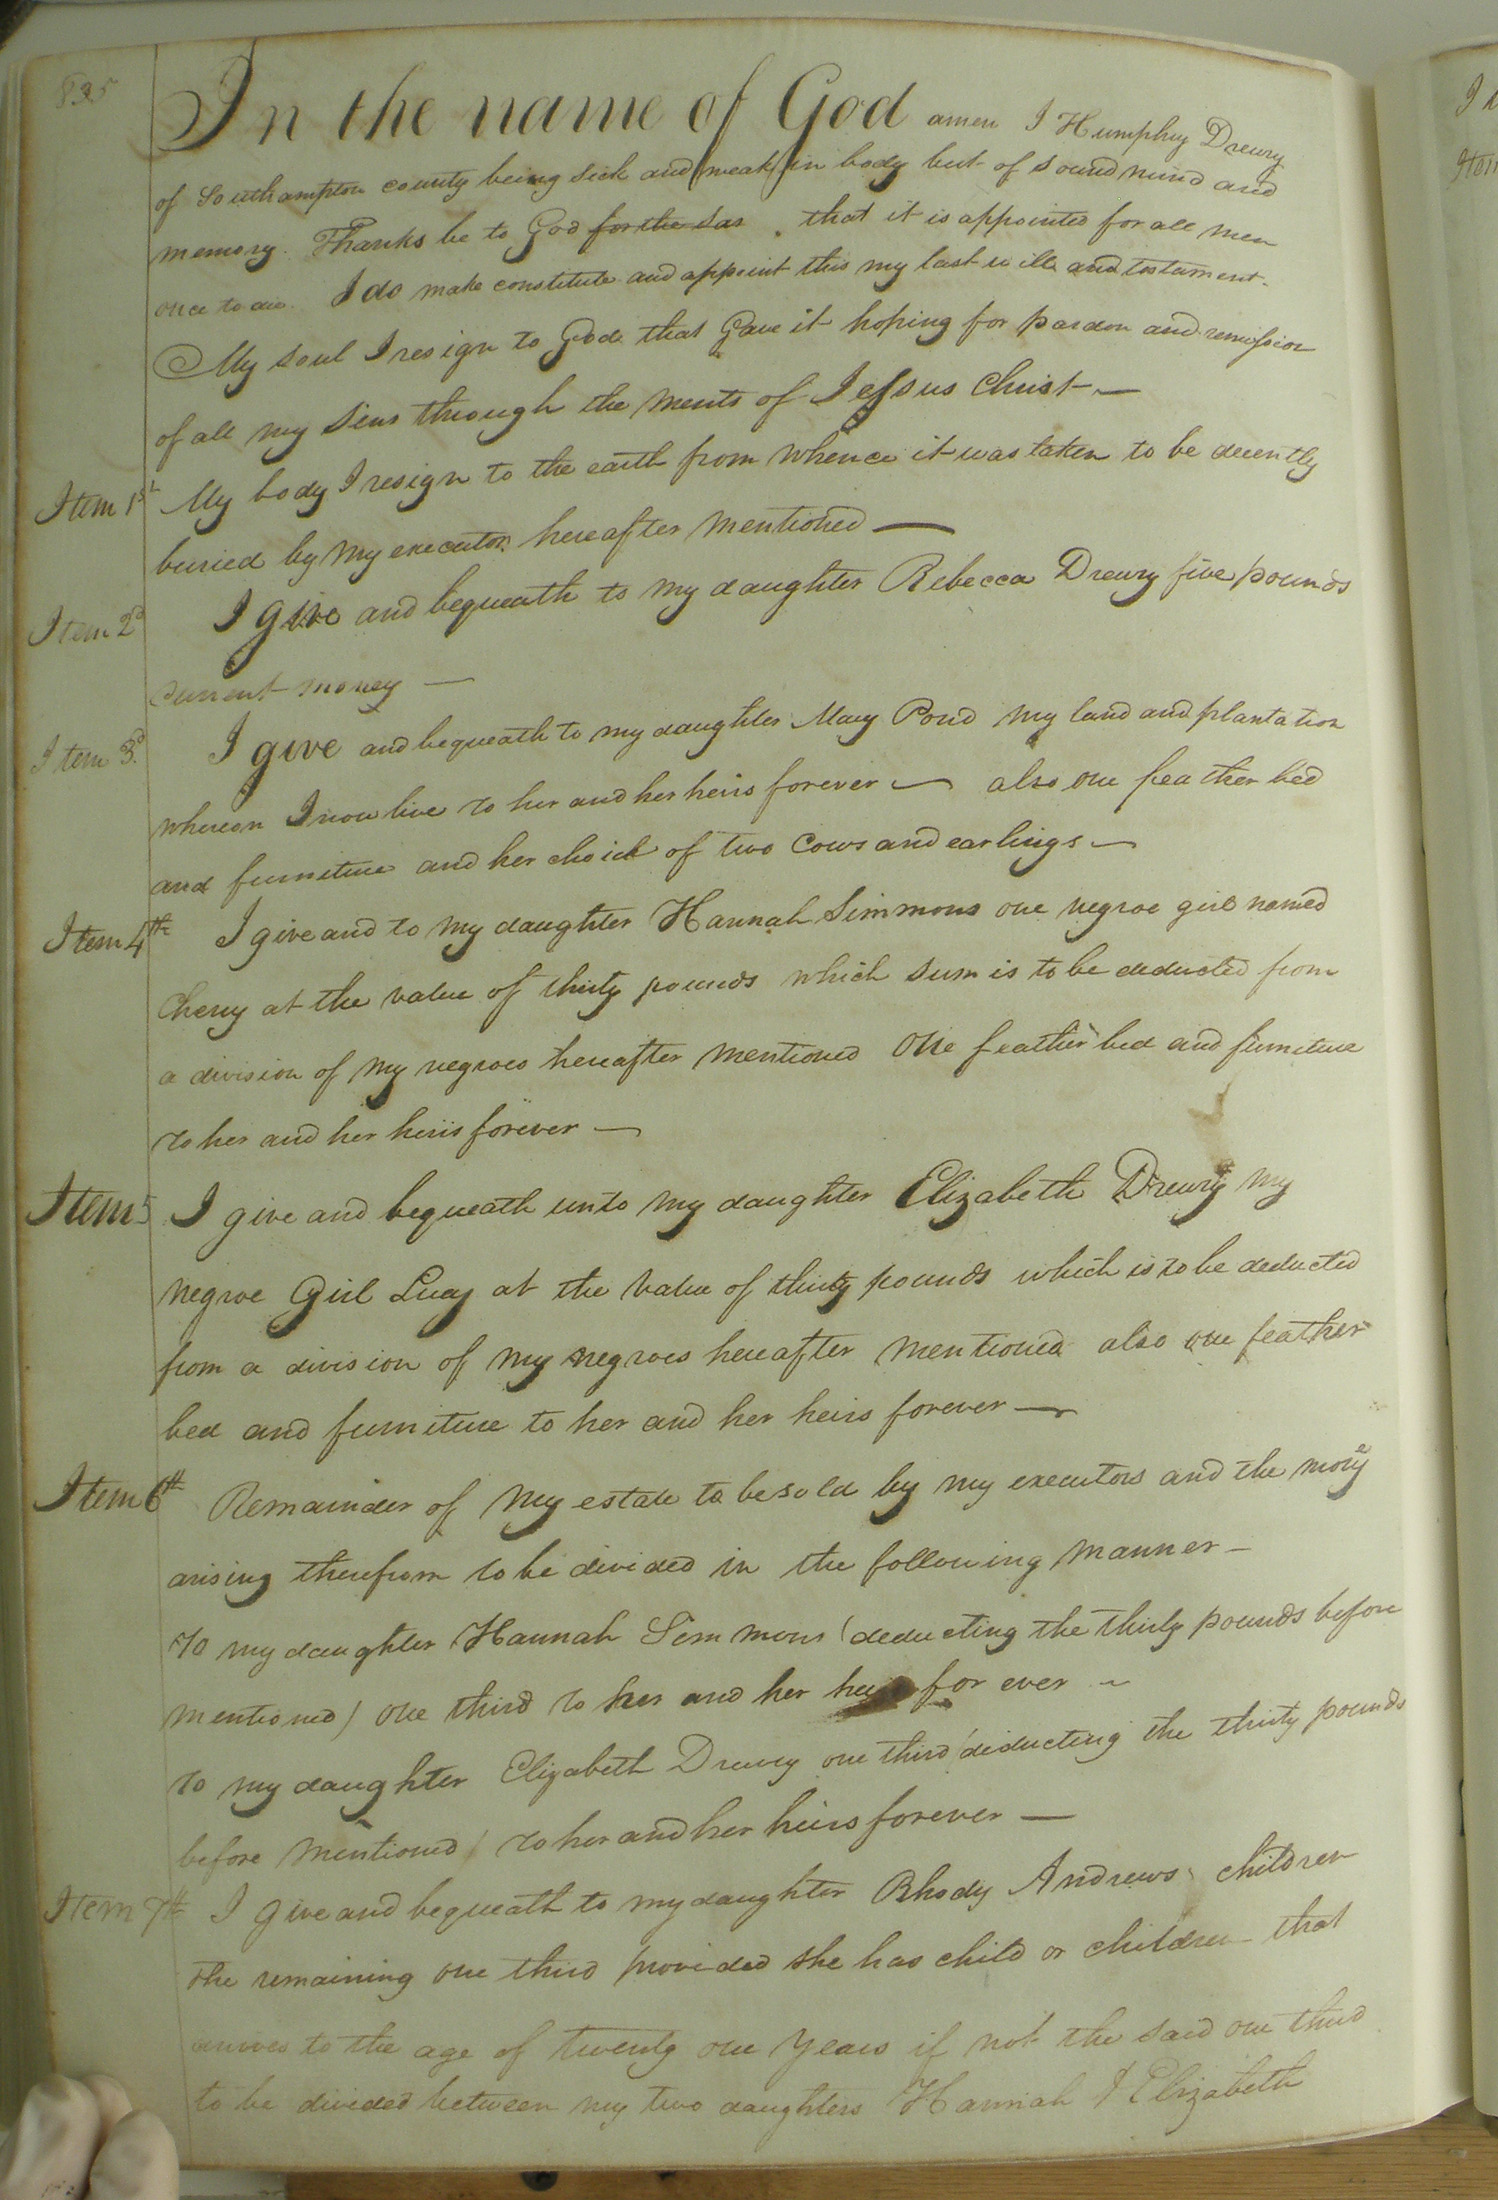 835
In the name of God amen I Humphry Drewry
of Southampton county being sick and weak in body but of sound mind and
memory. Thanks be to God for the sas. that it is appointed for all men
once to die. I do make constitute and appoint this my last will and testament.
My soul I resign to God that Gave it hoping for pardon and remission
of all my sins through the merits of Jessus Christ —
Item 1st My body I resign to the earth from whence it was taken to be decently
buried by my executors hereafter mentioned —
Item 2d I give and bequeath to my daughter Rebecca Drewry five pounds
current money —
Item 3d. I give and bequeath to my daughter Mary Pond my land and plantation
whereon I now live to her and her heirs forever — also one feather bed
and furniture and her choice of two cows and earlings —
Item 4th I give and to my daughter Hannah Simmons one negroe girl named
Cherry at the value of thirty pounds which sum is to be deducted from
a division of my negroes hereafter mentioned One feather bed and furniture
to her and her heirs forever —
Item 5 I give and bequeath unto my daughter Elizabeth Drewry my
negroe Girl Lucy at the value of thirty pounds which is to be deducted
from a division of my negroes hereafter mentioned also one feather
bed and furniture to her and her heirs forever —
Item 6th Remainder of my estate to be sold by my executors and the money
arising therefrom to be divided in the following manner —
To my daughter Hannah Simmons (deducting the thirty pounds before
mentioned) one third to her and her heirs for ever —
To my daughter Elizabeth Drewry one third (deducting the thirty pounds
before mentioned) to her and her heirs forever —
Item 7th I give and bequeath to my daughter Rhody Andrews children
the remaining one third provided she has child or children that
arrives to the age of twenty one years if not the said one third
to be divided between my two daughters Hannah & Elizabeth